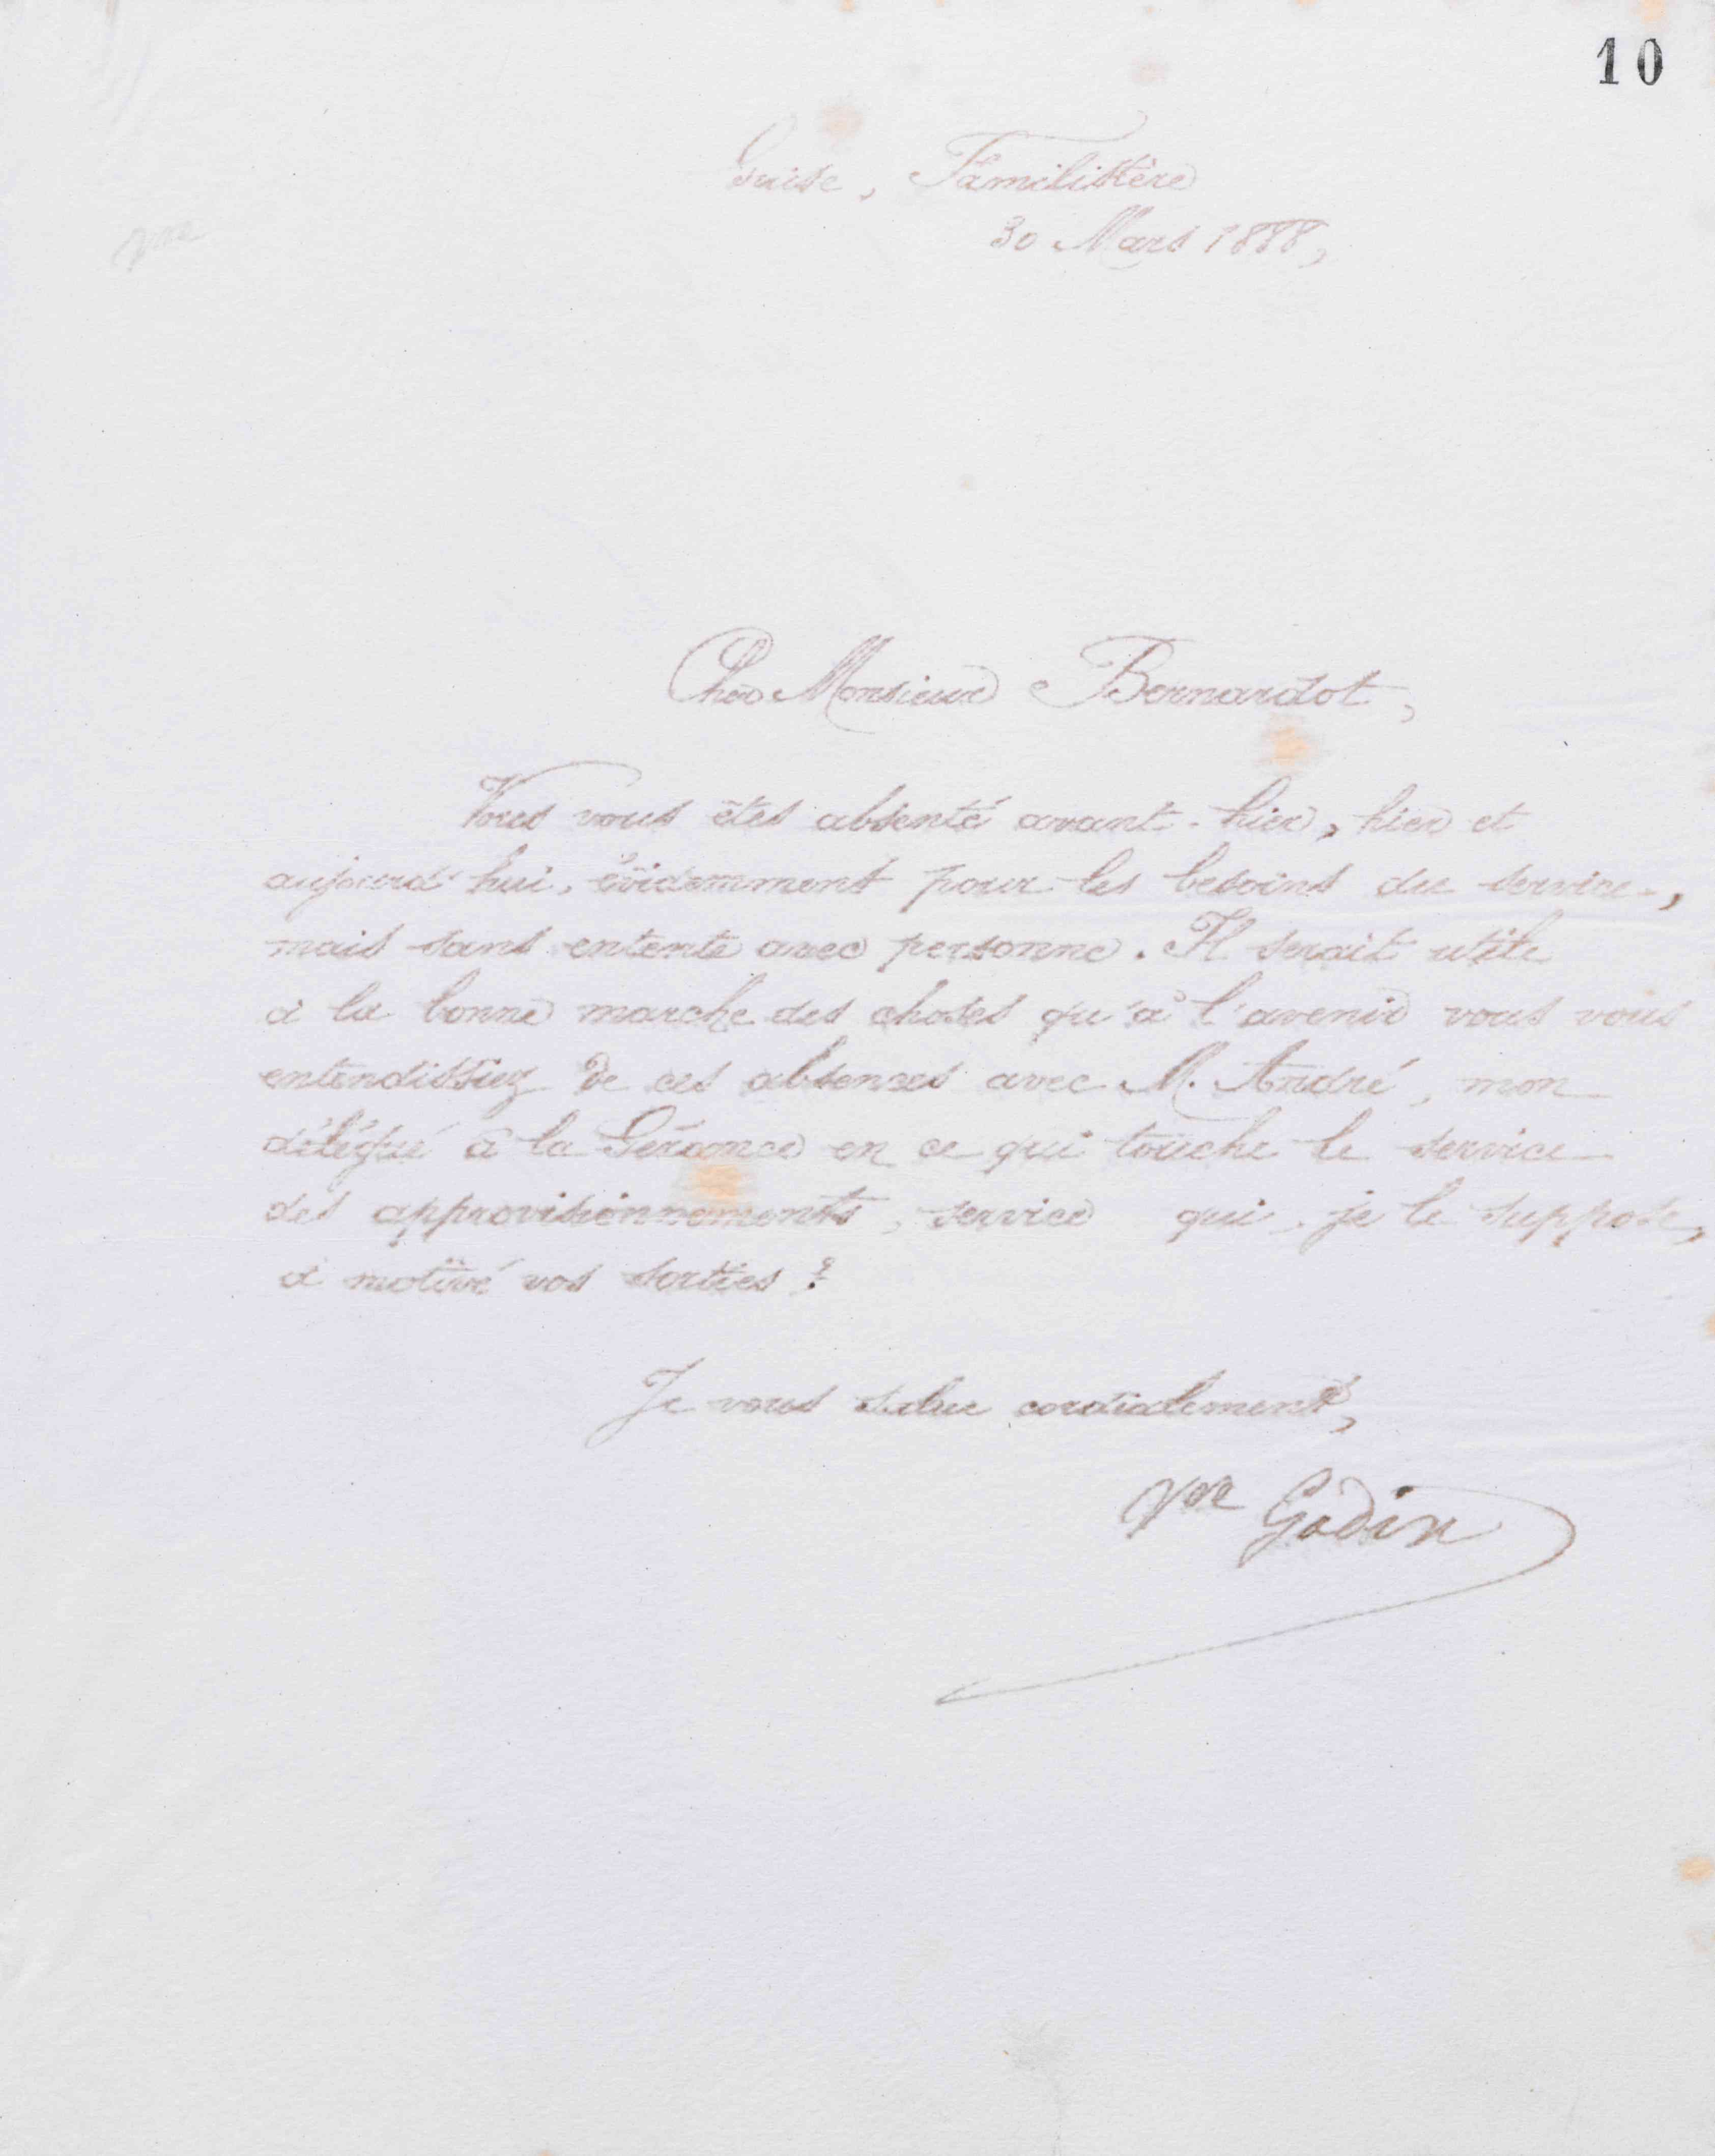 10
Guise, Familistère
30 Mars 1888,
Vve
Cher Monsieur Bernardot,
Vous vous êtes absenté avant-hier, hier et
aujourd'hui, évidemment pour les besoins du service,
mais sans entente avec personne. Il serait utile
à la bonne marche des choses qu'à l'avenir vous vous
entendissiez de ces absences avec M. André, mon
délégué à la Gérance en ce qui touche le service
des approvisionnements, service qui, je le suppose,
a motivé vos sorties ?
Je vous salue cordialement,
Vve Godin